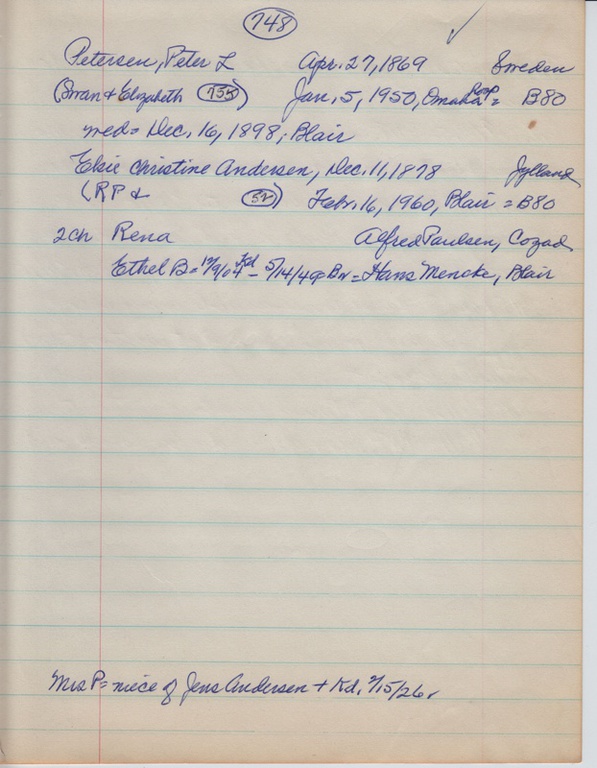 748
Petersen, Peter L Apr. 27, 1869 Sweden
(Swan & Elizabeth 755) Jan. 5, 1950, Omaha Hosp = B80
wed = Dec. 16, 1898, Blair
Elsie Christine Andersen, Dec. 11, 1878 Jylland
(RP & 52) Febr. 16, 1960, Blair = B80
2ch Rena Alfred Paulsen, Cozad
Ethel B = 12/9/04 Kd - 5/14/49 Br = Hans Mencke, Blair
Mrs P = niece of Jens Andersen + Kd,